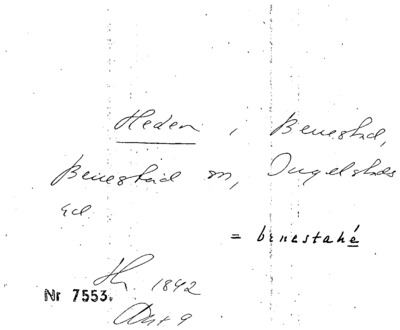 Heden, Benestad,
Benestad sn, Ingelstads
hd.
= benestahé
1842
Nr 7553.
Akt 9